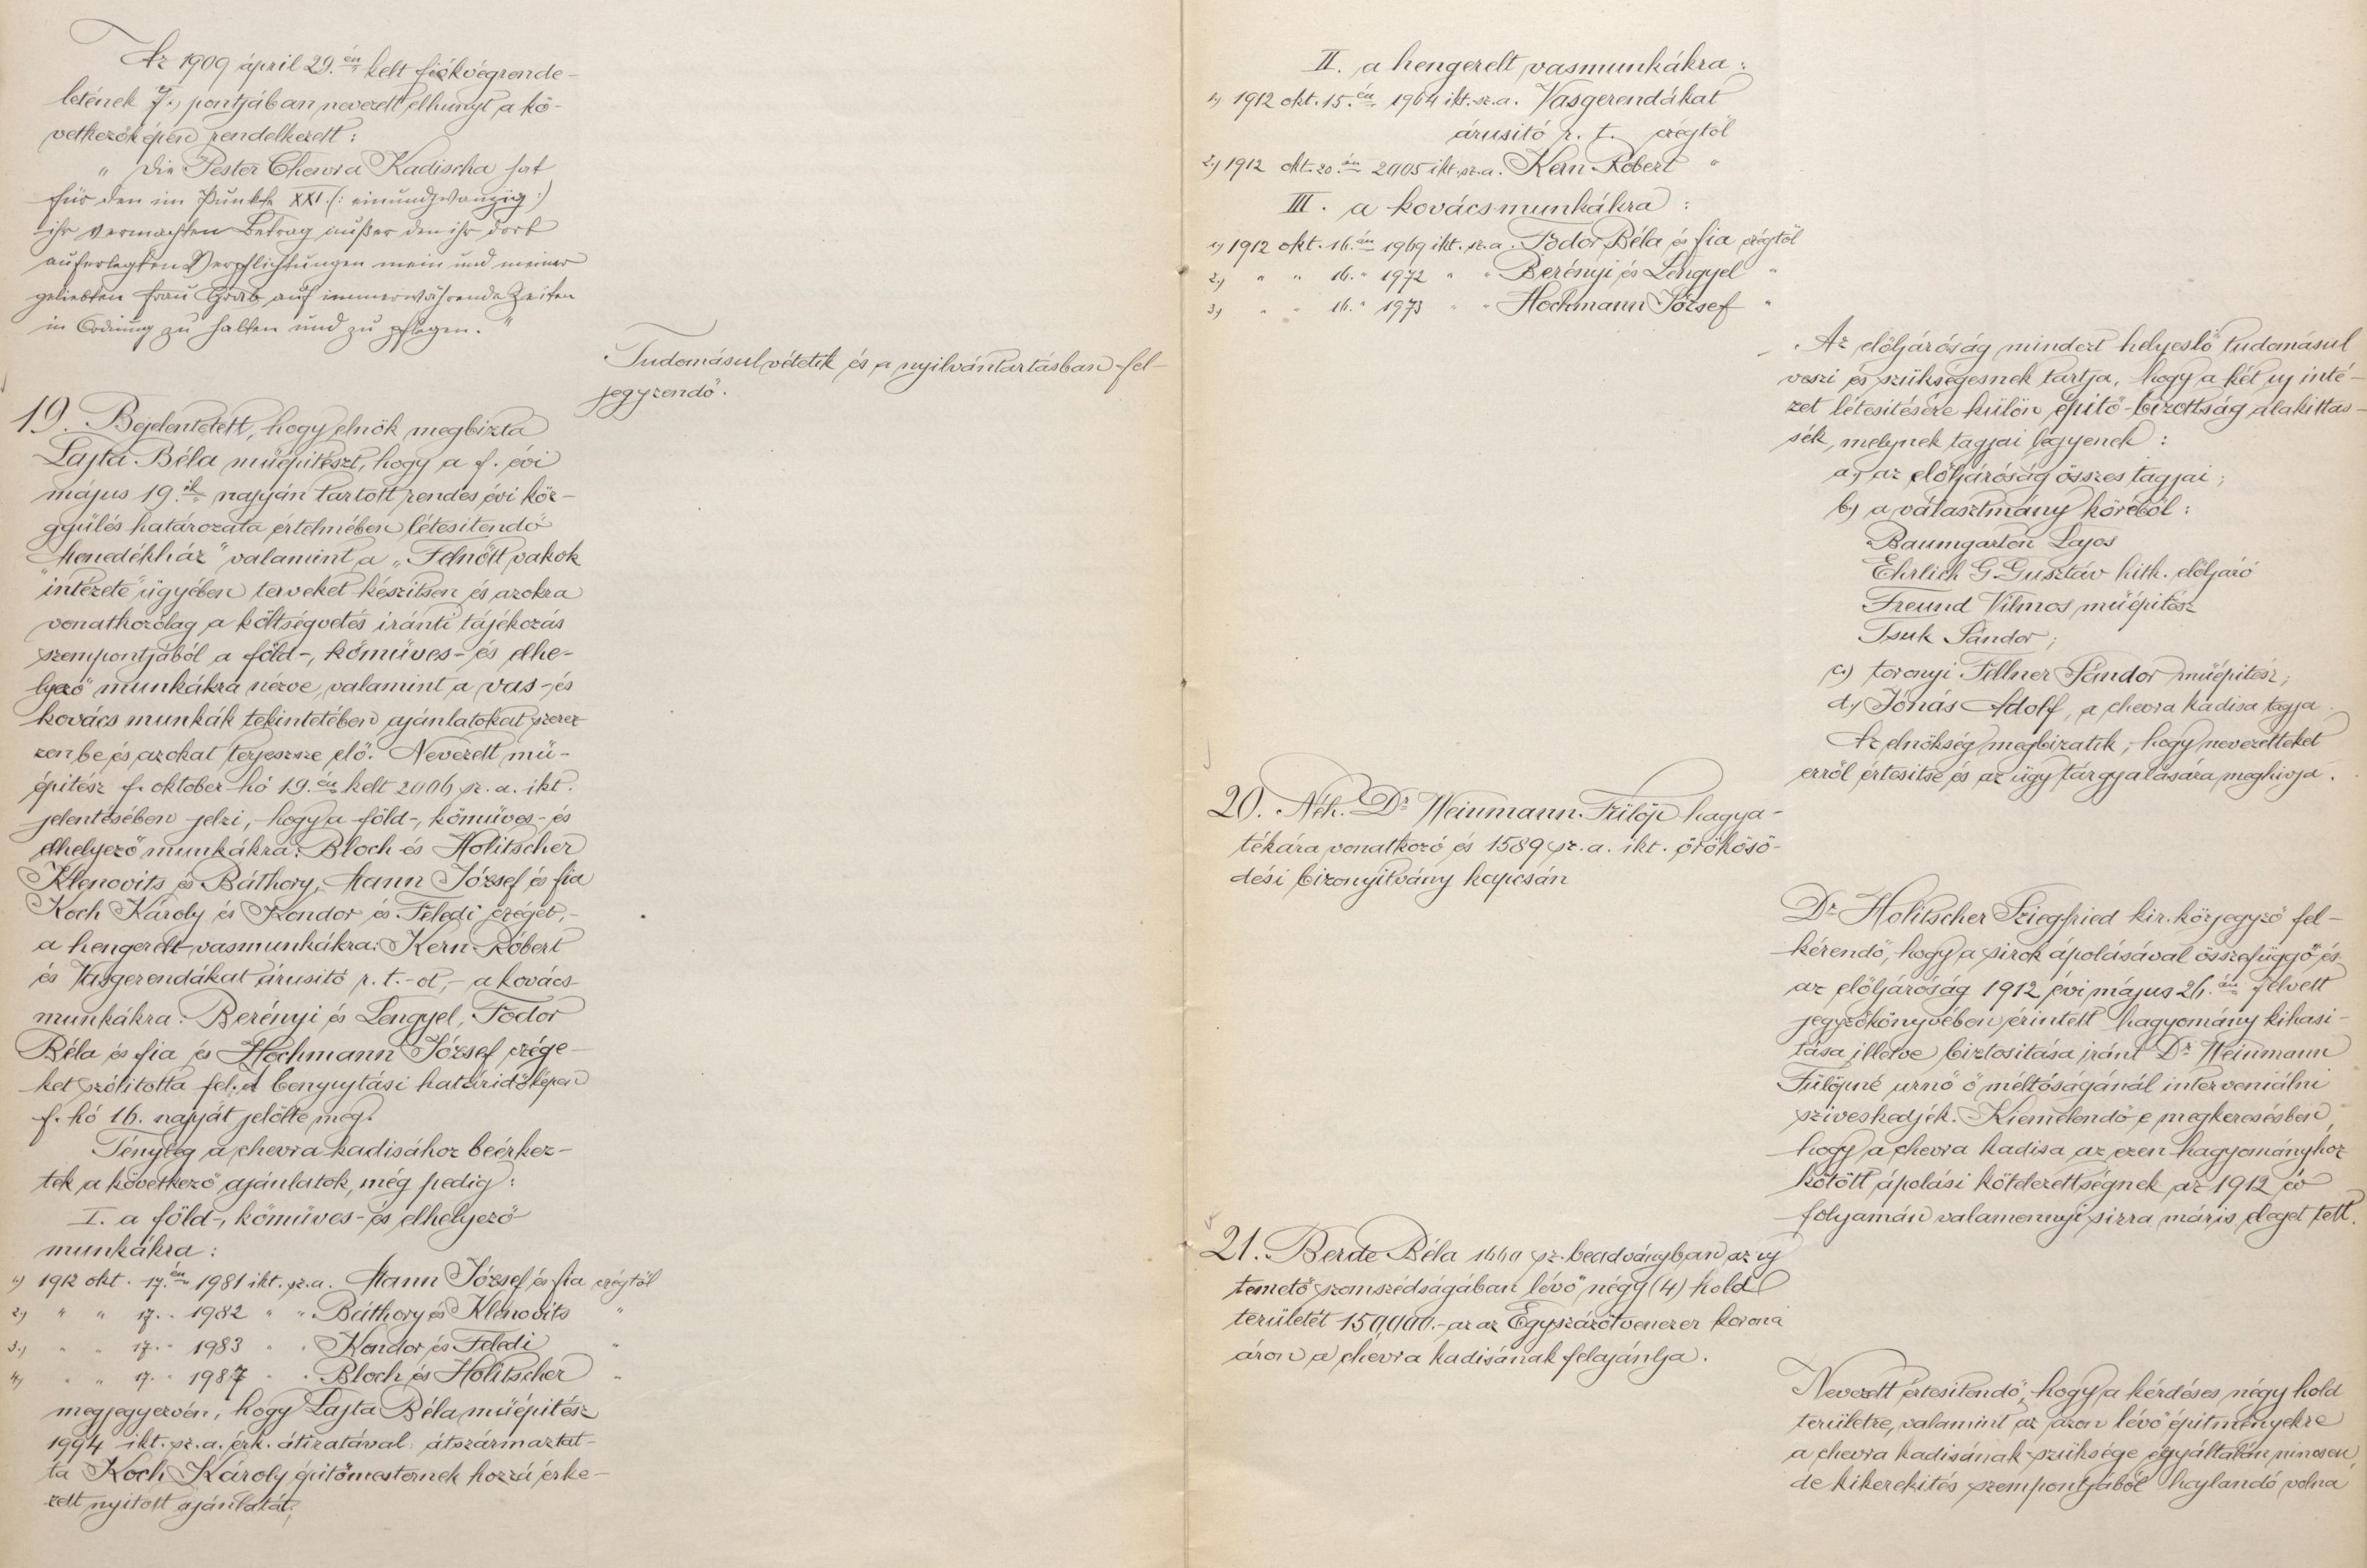 Az 1909 április 29.én kelt fiókvégrende-
letének 7., pontjában nevezett elhunyt a kö-
vetkezőképen rendelkezett:
" Die Pester Chewra Kadischa hat
für den im Punkte XXI (: einundzwanzig :)
ihr vermachten Betrag außer den ihr dort
auferlegten Verpflichtungen mein und meiner
geliebten Frau Grab auf immerwährende Zeiten
in Ordnung zu halten und zu pflegen. "
Tudomásul vétetik és a nyilvántartásban fel-
jegyzendő.
19. Bejelentetett, hogy elnök megbizta
Lajta Béla műépitészt, hogy a f. évi
május 19.ik napján tartott rendes évi köz-
gyülés határozata értelmében létesitendő
„Menedékház" valamint a „Felnőtt vakok
intézete" ügyében terveket készitsen és azokra
vonatkozólag a költségvetés iránti tájékozás
szempontjából a föld-, kőmüves- és elhe-
lyező munkákra nézve, valamint a vas- és
kovács munkák tekintetében ajánlatokat szerez-
zen be és azokat terjessze elő. Nevezett mü-
épitész f. október hó 19.én kelt 2006 sz. a. ikt.
jelentésében jelzi, hogy a föld-, kőmüves- és
elhelyező munkákra: Bloch és Holitscher
Klenovits és Báthory, Mann József és fia
Koch Károly és Kondor és Feledi czéget,-
a hengerelt vasmunkákra: Kern Róbert
és Vasgerendákat árusitó r. t.-ot,- a kovács-
munkákra: Berényi és Lengyel, Fodor
Béla és fia és Hochmann József czége-
ket szólitotta fel, a benyujtási határidőképen
f. hó 16. napját jelölte meg.
Tényleg a chevra kadisához beérkez-
tek a következő ajánlatok, még pedig:
I. a föld-, kőmüves- és elhelyező
munkákra:
1.) 1912 okt. 17.én 1981 ikt. sz. a. Mann József és fia czégtől
2.) " " 17. " 1982 " " Báthory és Klenovits "
3.) " " 17. " 1983 " " Kondor és Feledi "
4.) " " 17. " 1987 " " Bloch és Holitscher "
megjegyezvén, hogy Lajta Béla müépitész
1994 ikt. sz. a. érk. átiratával átszármaztat-
ta Koch Károly épitőmesternek hozzá érke-
zett nyitott ajánlatát;
II. a hengerelt vasmunkákra:
1.) 1912 okt. 15.én 1964 ikt. sz. a. Vasgerendákat
árusitó r. t. czégtől
2.) 1912 okt. 20.án 2005 ikt. sz. a. Kern Róbert "
III. a kovácsmunkákra:
1.) 1912 okt. 16.án 1969 ikt. sz. a. Fodor Béla és fia czégtöl
2.) " " 16. " 1972 " " Berényi és Lengyel "
3.) " " 16. " 1973 " " Hochmann József "
Az elöljáróság mindezt helyeslő tudomásul
veszi és szükségesnek tartja, hogy a két uj inté-
zet létesitésére külön épitő-bizottság alakittas-
sék, melynek tagjai legyenek:
a.) az elöljáróság összes tagjai;
b.) a választmány köréből:
Baumgarten Lajos
Ehrlich G. Gusztáv hitk. elöljáró
Freund Vilmos müépitész
Tsuk Sándor;
c.) toronyi Fellner Sándor müépitész;
d.) Jónás Adolf, a chevra kadisa tagja.
Az elnökség megbizatik, hogy nevezetteket
erről értesitse és az ügy tárgyalására meghivja.
20. Néh. Dr Weinmann Fülöp hagya-
tékára vonatkozó és 1589 sz. a. ikt. örökösö-
dési bizonyitvány kapcsán
Dr Holitscher Sziegfried kir. közjegyző fel-
kérendő, hogy a sirok ápolásával összefüggő és
az elöljáróság 1912 évi május 26.án felvett
jegyzőkönyvében érintett hagyomány kihasi-
tása illetve biztositása iránt Dr Weinmann
Fülöpné urnő ő méltóságánál interveniálni
sziveskedjék. Kiemelendő e megkeresésben,
hogy a chevra kadisa az ezen hagyományhoz
kötött ápolási kötelezettségnek az 1912 év
folyamán valamennyi sirra máris eleget tett.
21. Berde Béla 1660 sz. beadványban az uj
temető szomszédságában lévő négy (4) hold
területét 150,000.- az az Egyszázötvenezer korona
áron a chevra kadisának felajánlja.
Nevezett értesitendő, hogy a kérdéses négy hold
területre, valamint az azon lévő épitményekre
a chevra kadisának szüksége egyáltalán nincsen,
de kikerekités szempontjából hajlandó volna